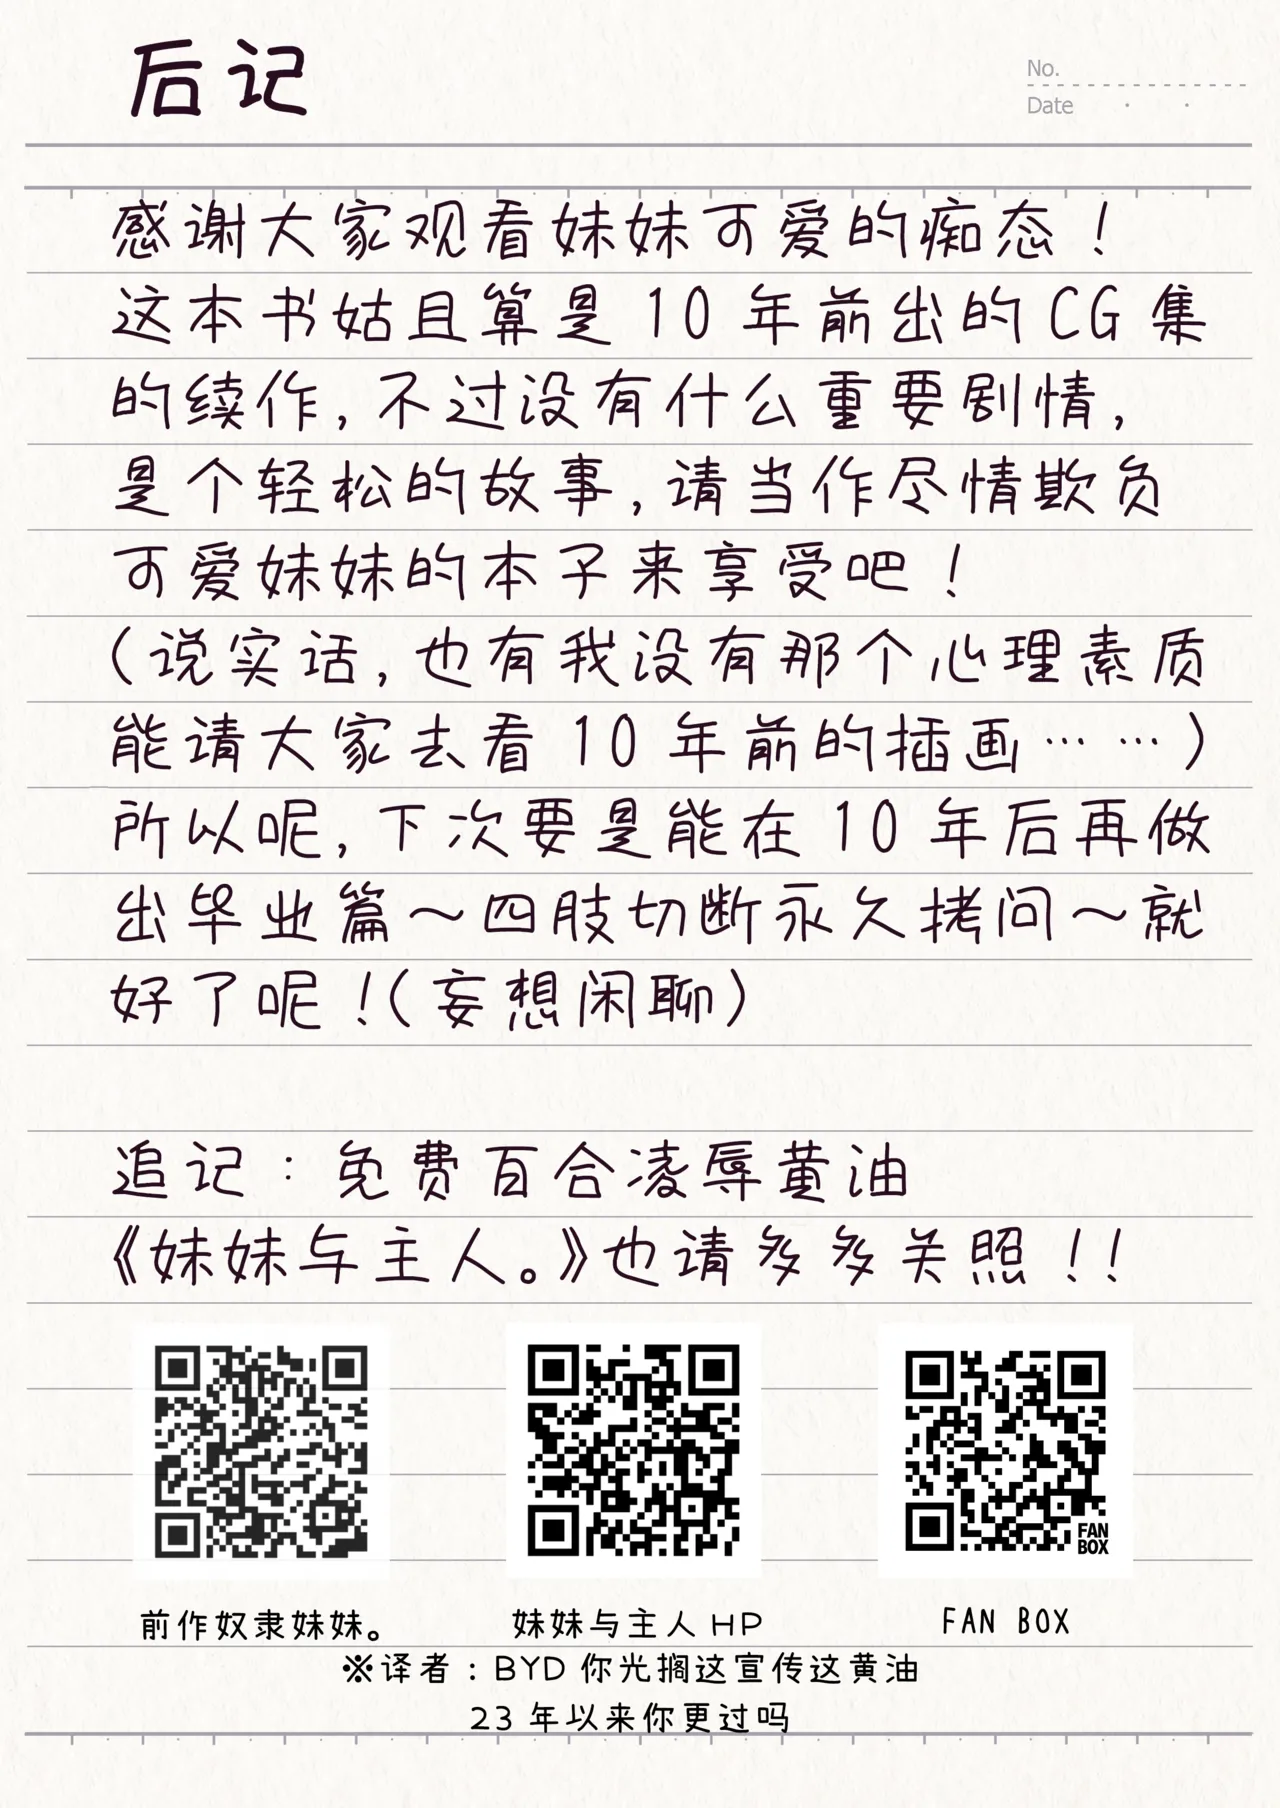 后记
No.
Date
感谢大家观看妹妹可爱的痴态！
这本书姑且算是 10 年前出的 CG 集
的续作，不过没有什么重要剧情，
是个轻松的故事，请当作尽情欺负
可爱妹妹的本子来享受吧！
（说实话，也有我没有那个心理素质
能请大家去看 10 年前的插画……）
所以呢，下次要是能在 10 年后再做
出毕业篇～四肢切断永久拷问～就
好了呢！（妄想闲聊）
追记：免费百合凌辱黄油
《妹妹与主人。》也请多多关照！！
FAN
BOX
前作奴隶妹妹。
妹妹与主人 HP
FAN BOX
※译者：BYD 你光搁这宣传这黄油
23 年以来你更过吗